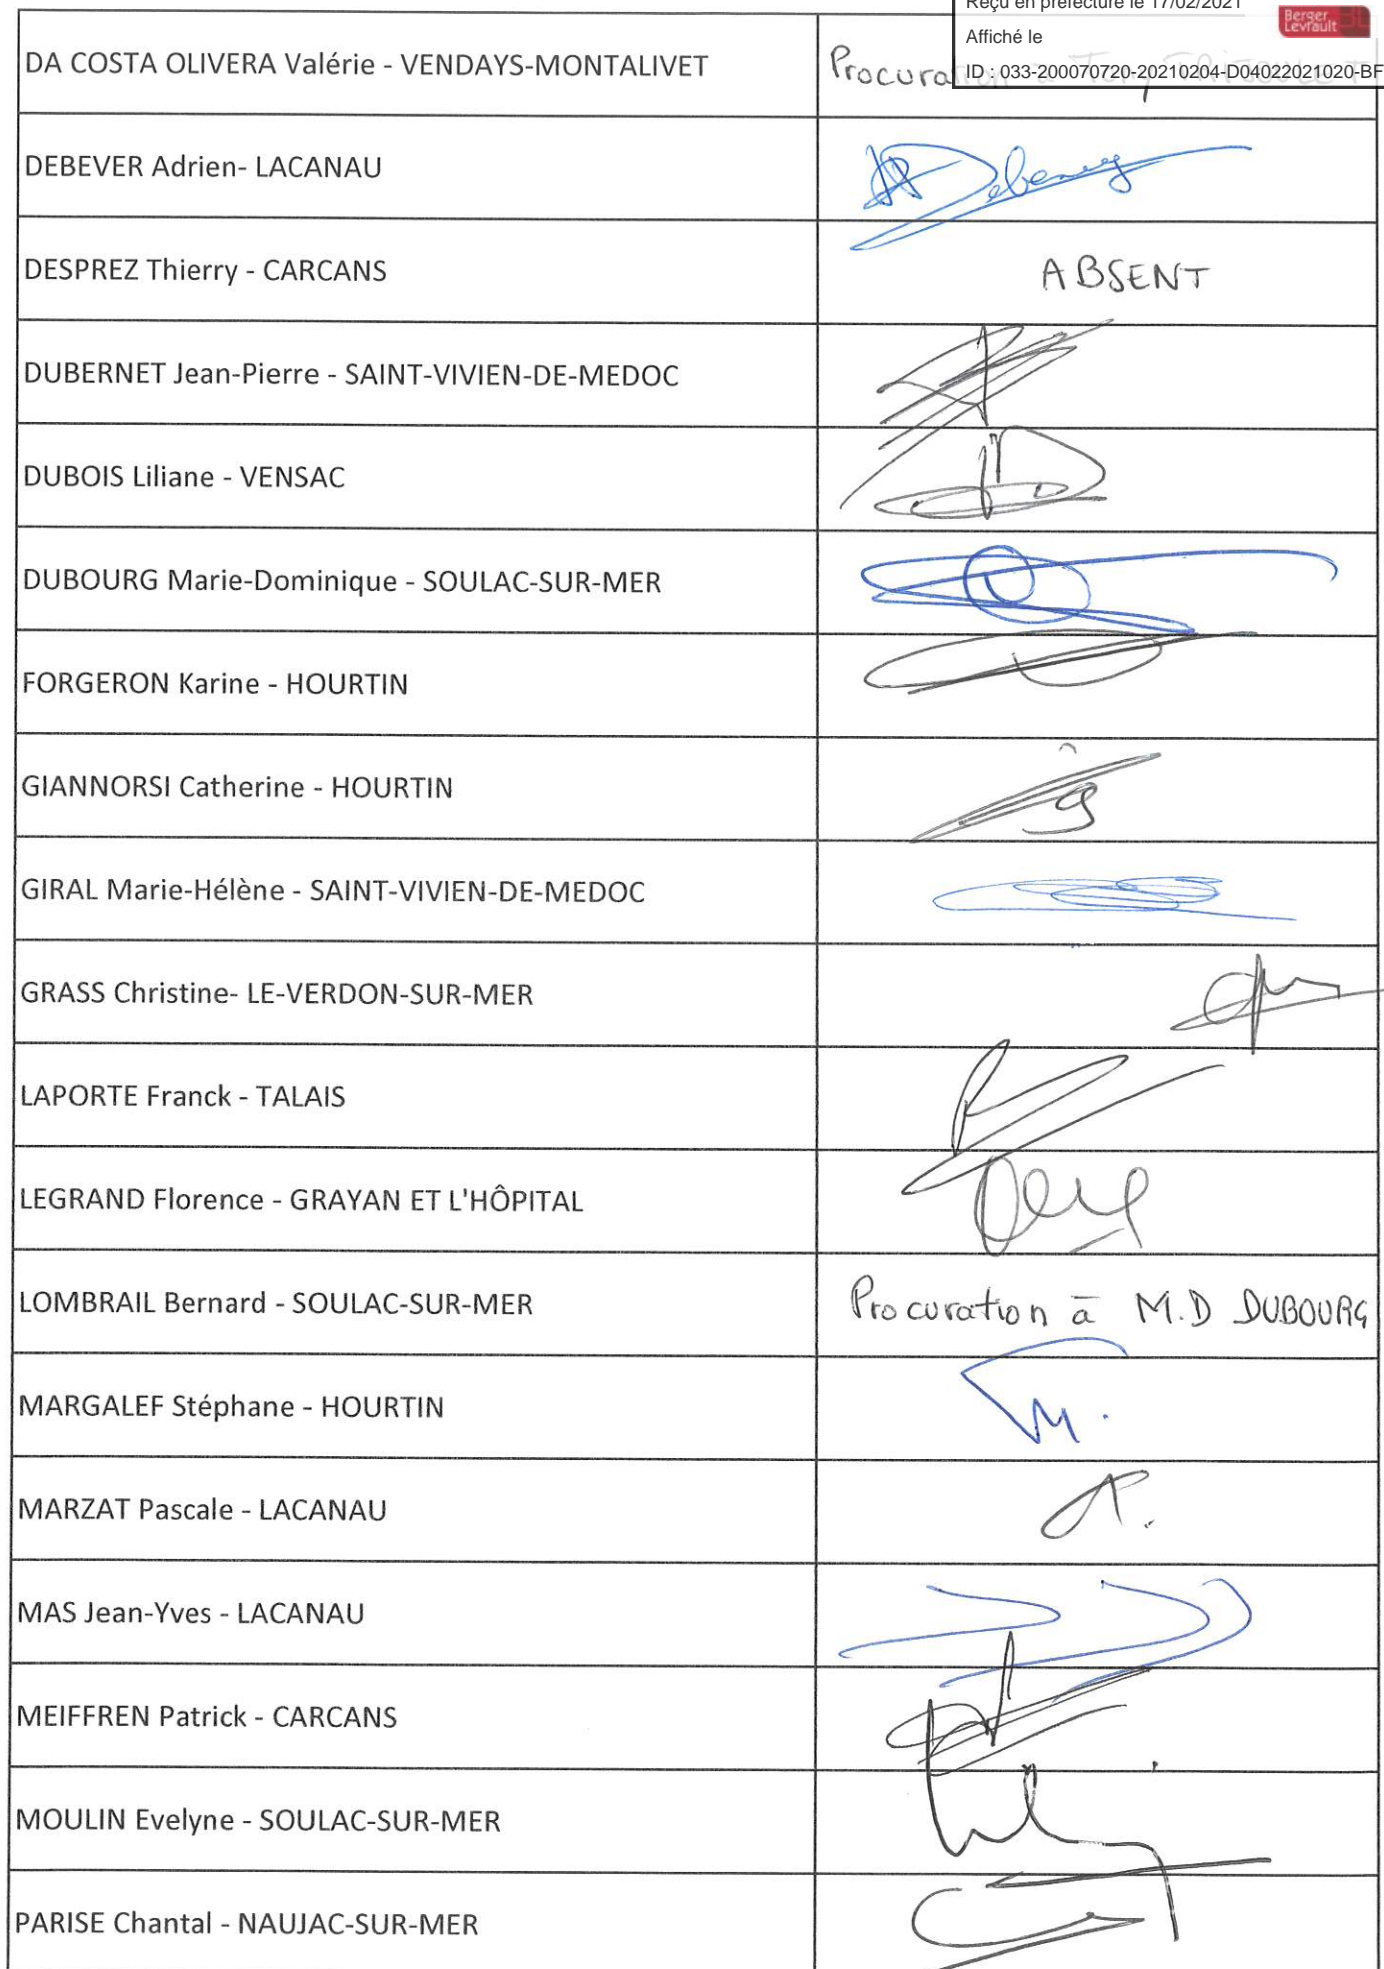 Reçu en préfecture le 17/02/2021
Berger
Levrault
Affiché le
ID : 033-200070720-20210204-D04022021020-BF
DA COSTA OLIVERA Valérie - VENDAYS-MONTALIVET
DEBEVER Adrien- LACANAU
DESPREZ Thierry - CARCANS ABSENT
DUBERNET Jean-Pierre - SAINT-VIVIEN-DE-MEDOC
DUBOIS Liliane - VENSAC
DUBOURG Marie-Dominique - SOULAC-SUR-MER
FORGERON Karine - HOURTIN
GIANNORSI Catherine - HOURTIN
GIRAL Marie-Hélène - SAINT-VIVIEN-DE-MEDOC
GRASS Christine- LE-VERDON-SUR-MER
LAPORTE Franck - TALAIS
LEGRAND Florence - GRAYAN ET L'HÔPITAL
LOMBRAIL Bernard - SOULAC-SUR-MER Procuration à M.D DUBOURG
MARGALEF Stéphane - HOURTIN
MARZAT Pascale - LACANAU
MAS Jean-Yves - LACANAU
MEIFFREN Patrick - CARCANS
MOULIN Evelyne - SOULAC-SUR-MER
PARISE Chantal - NAUJAC-SUR-MER